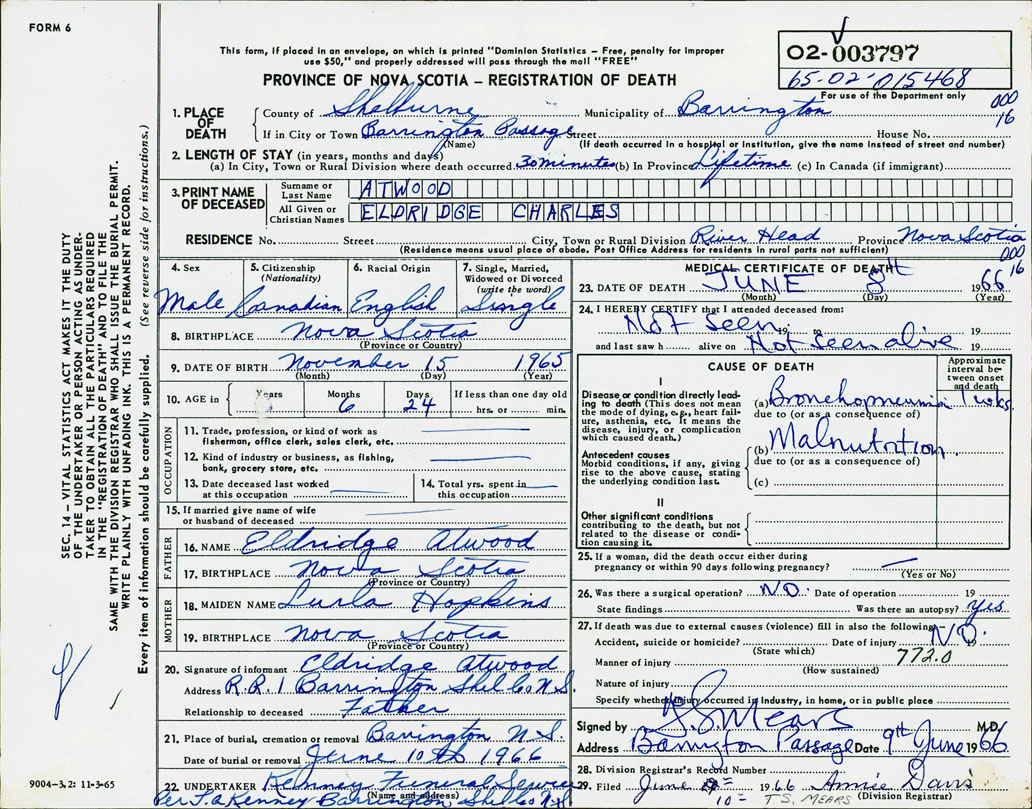 FORM 6
This form, if placed in an envelope, on which is printed "Dominion Statistics – Free, penalty for improper
use $50," and properly addressed will pass through the mail "FREE"
PROVINCE OF NOVA SCOTIA – REGISTRATION OF DEATH
02-003797
65-02-015468
For use of the Department only
000
16
1. PLACE OF DEATH
County of Shelburne Municipality of Barrington
If in City or Town Barrington Passage Street House No.
(Name) (If death occurred in a hospital or institution, give the name instead of street and number)
2. LENGTH OF STAY (in years, months and days)
(a) In City, Town or Rural Division where death occurred 30 minutes (b) In Province Lifetime (c) In Canada (if immigrant)
3. PRINT NAME OF DECEASED
Surname or Last Name ATWOOD
All Given or Christian Names ELDRIDGE CHARLES
RESIDENCE No. Street City, Town or Rural Division River Head Province Nova Scotia
(Residence means usual place of abode. Post Office Address for residents in rural parts not sufficient)
000
16
4. Sex
Male
5. Citizenship
(Nationality)
Canadian
6. Racial Origin
English
7. Single, Married,
Widowed or Divorced
(write the word)
Single
8. BIRTHPLACE Nova Scotia
(Province or Country)
9. DATE OF BIRTH November 15 1965
(Month) (Day) (Year)
10. AGE in Years Months 6 Days 24 If less than one day old
hrs. or min.
OCCUPATION
11. Trade, profession, or kind of work as
fisherman, office clerk, sales clerk, etc.
12. Kind of industry or business, as fishing,
bank, grocery store, etc.
13. Date deceased last worked
at this occupation
14. Total yrs. spent in
this occupation
15. If married give name of wife
or husband of deceased
FATHER
16. NAME Eldridge Atwood
17. BIRTHPLACE Nova Scotia
(Province or Country)
MOTHER
18. MAIDEN NAME Lurla Hopkins
19. BIRTHPLACE Nova Scotia
(Province or Country)
20. Signature of informant Eldridge Atwood
Address R.R.1 Barrington Shel Co N.S.
Relationship to deceased Father
21. Place of burial, cremation or removal Barrington N.S.
Date of burial or removal June 10th 1966
22. UNDERTAKER Kenney Funeral Service
(Name and address)
Per J.A Kenney Barrington Shel Co N.S
MEDICAL CERTIFICATE OF DEATH
23. DATE OF DEATH JUNE 8th 1966
(Month) (Day) (Year)
24. I HEREBY CERTIFY that I attended deceased from:
Not Seen 19 to 19
and last saw h alive on Not Seen alive 19
CAUSE OF DEATH
Approximate interval between onset and death
I
Disease or condition directly leading to death (This does not mean the mode of dying, e.g., heart failure, asthenia, etc. It means the disease, injury, or complication which caused death.)
(a) Bronchopneumonia 1 wks.
due to (or as a consequence of)
Antecedent causes
Morbid conditions, if any, giving rise to the above cause, stating the underlying condition last.
(b) Malnutrition
due to (or as a consequence of)
(c)
II
Other significant conditions
contributing to the death, but not related to the disease or condition causing it.
25. If a woman, did the death occur either during
pregnancy or within 90 days following pregnancy?
(Yes or No)
26. Was there a surgical operation? NO. Date of operation 19
State findings Was there an autopsy? Yes
27. If death was due to external causes (violence) fill in also the following:– NO.
Accident, suicide or homicide? Date of injury 19
(State which)
772.0
Manner of injury
(How sustained)
Nature of injury
Specify whether injury occurred in industry, in home, or in public place
Signed by T.S. Mears M.D.
Address Barrington Passage Date 9th June 1966
28. Division Registrar's Record Number
29. Filed June 1966 Annie Davis
10= T.S. MEARS (Division Registrar)
SEC. 14 – VITAL STATISTICS ACT MAKES IT THE DUTY
OF THE UNDERTAKER OR PERSON ACTING AS UNDER-
TAKER TO OBTAIN ALL THE PARTICULARS REQUIRED
IN THE "REGISTRATION OF DEATH" AND TO FILE THE
SAME WITH THE DIVISION REGISTRAR WHO SHALL ISSUE THE BURIAL PERMIT.
WRITE PLAINLY WITH UNFADING INK. THIS IS A PERMANENT RECORD.
Every item of information should be carefully supplied. (See reverse side for instructions.)
9004-3.2: 11-3-65